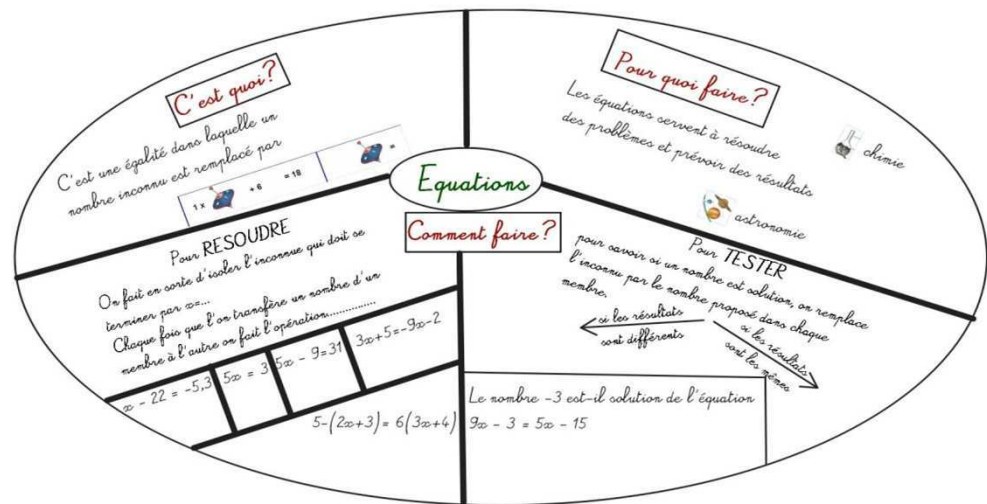 C'est quoi?
C'est une égalité dans laquelle un
nombre inconnu est remplacé par
1 x + 6 = 18
=
Pour quoi faire?
Les équations servent à résoudre
des problèmes et prévoir des résultats
chimie
astronomie
Equations
Comment faire?
Pour RESOUDRE
On fait en sorte d'isoler l'inconnue qui doit se
terminer par x=...
Chaque fois que l'on transfère un nombre d'un
membre à l'autre on fait l'opération...............
x - 22 = -5,3
5x = 3
5x - 9=31
3x+5=-9x-2
5-(2x+3)= 6(3x+4)
Pour TESTER
pour savoir si un nombre est solution, on remplace
l'inconnu par le nombre proposé dans chaque
membre.
si les résultats
sont différents
si les résultats
sont les mêmes
Le nombre -3 est-il solution de l'équation
9x - 3 = 5x - 15